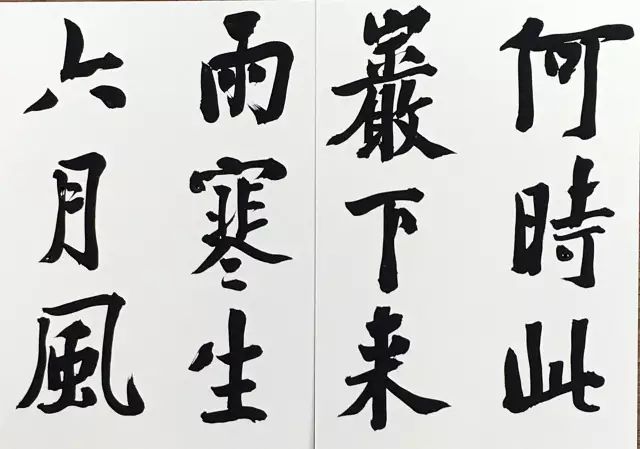 何時此
巖下来
雨寒生
六月風